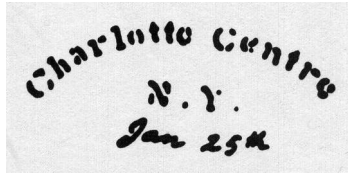 Charlotte Centre
N.Y.
Jan 25th